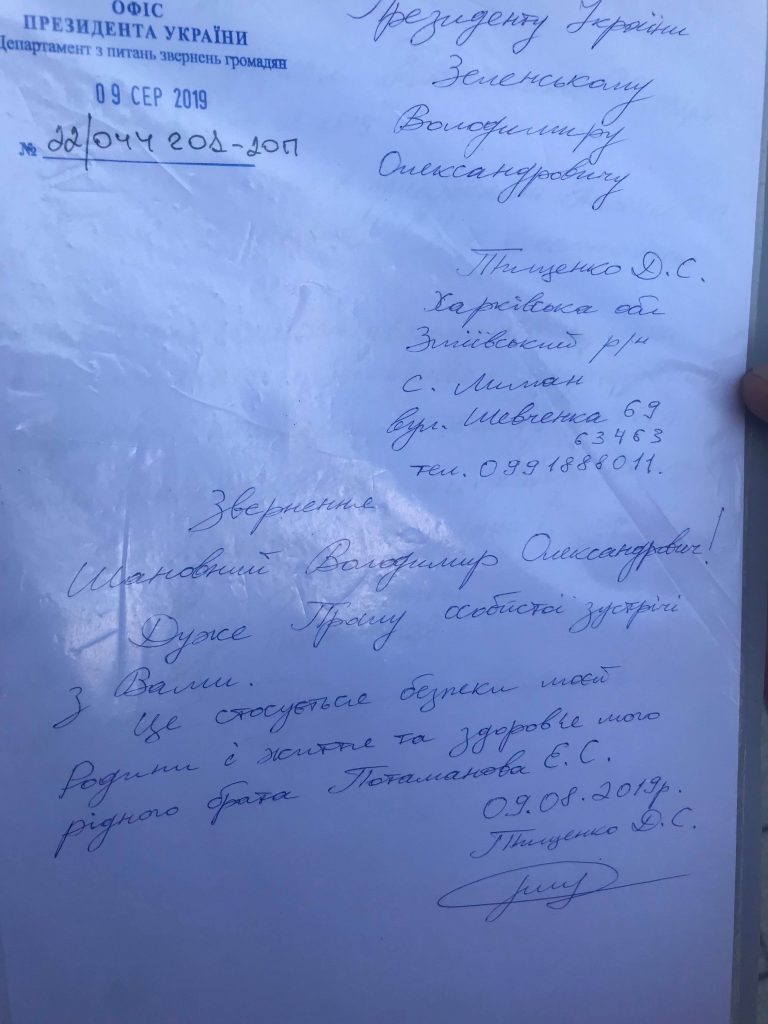 ОФІС
ПРЕЗИДЕНТА УКРАЇНИ
Департамент з питань звернень громадян
09 СЕР 2019
№ 22/044201-20П
Президенту України
Зеленському
Володимиру
Олександровичу
Пищенко Д.С.
Харківська обл
Зміївський р/н
с. Лиман
вул. Шевченка 69
63463
тел. 0991888011.
Звернення
Шановний Володимир Олександрович!
Дуже Прошу особистої зустрічі
з Вами.
Це стосується безпеки моєй
Родини і життя та здоров'є мого
рідного брата Потаманова Є.С.
09.08.2019р.
Пищенко Д.С.